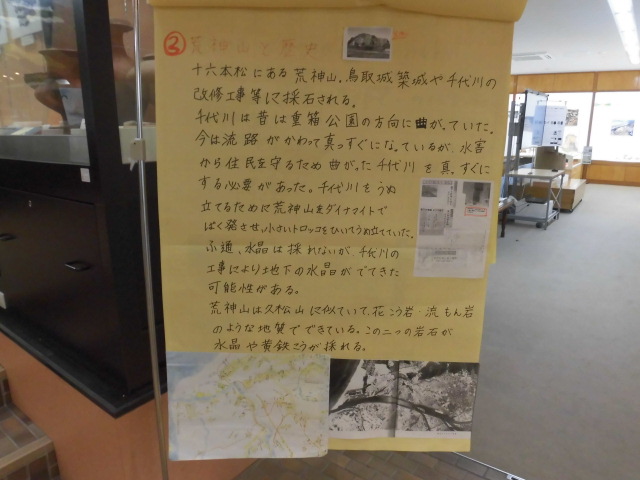 ② 荒神山と歴史
十六本松にある荒神山。鳥取城築城や千代川の
改修工事等に採石される。
千代川は昔は重箱公園の方向に曲がっていた。
今は流路がかわって真っすぐになっているが、水害
から住民を守るため曲がった千代川を真っすぐに
する必要があった。千代川をうめ
立てるために荒神山をダイナマイトで
ばく発させ、小さいトロッコをひいてうめ立てていた。
ふ通、水晶は採れないが、千代川の
工事により地下の水晶がでてきた
可能性がある。
荒神山は久松山に似ていて、花こう岩・流もん岩
のような地質でできている。この二つの岩石が
水晶や黄鉄こうが採れる。